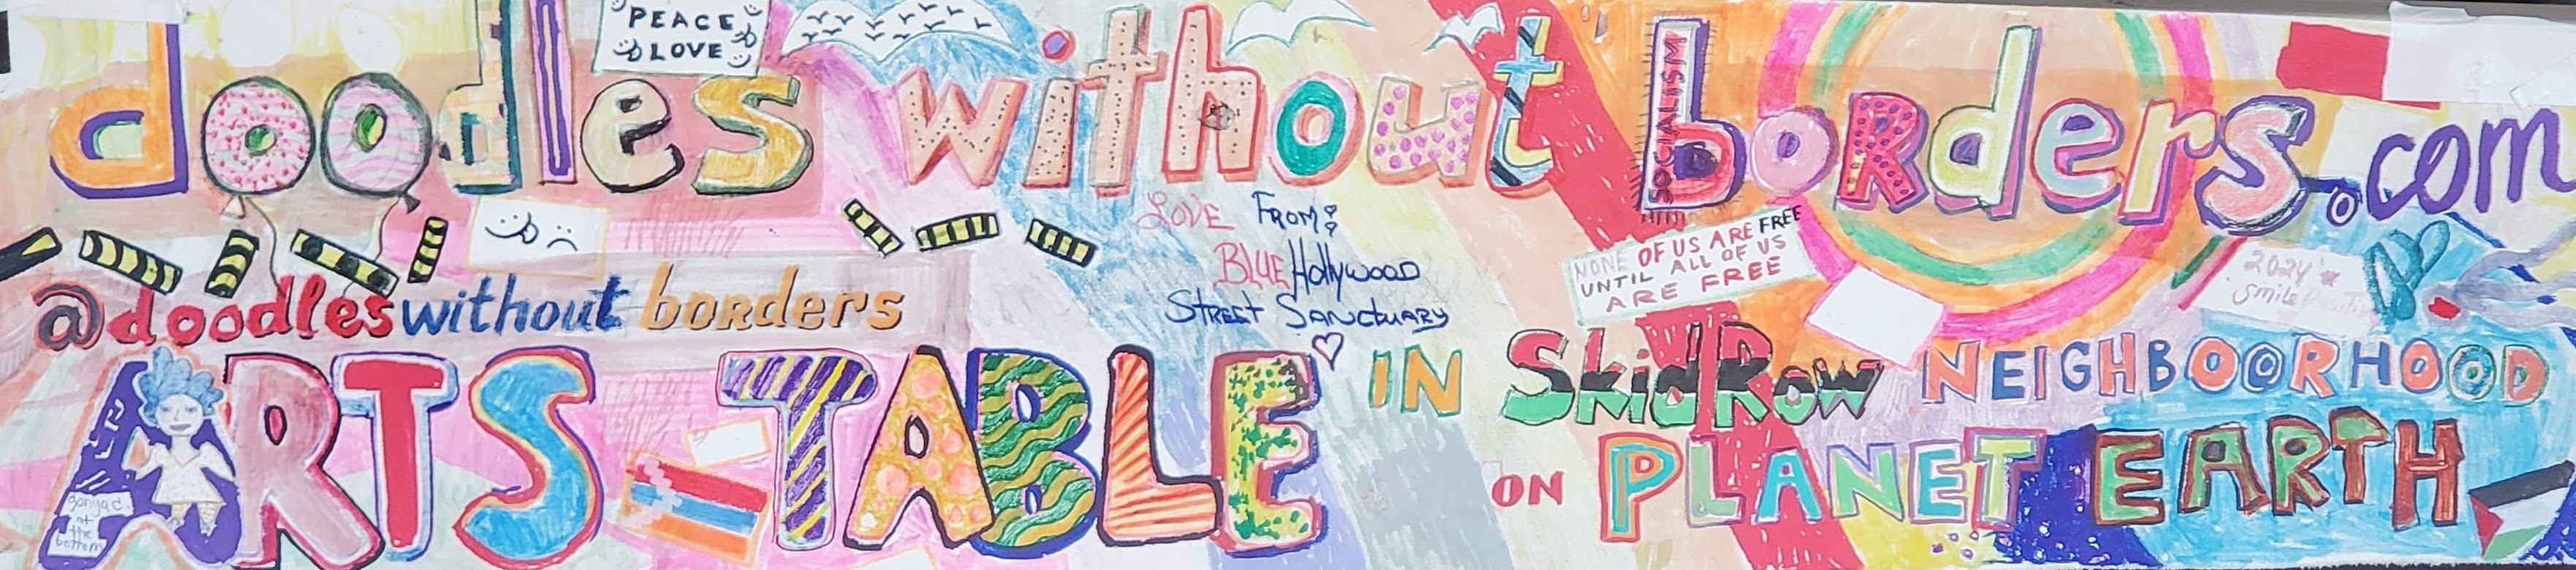 PEACE
LOVE
doodles without borders.com
SOCIALISM
LOVE FROM:
BLUE Hollywood
STREET SANCTUARY
NONE OF US ARE FREE
UNTIL ALL OF US
ARE FREE
2024
Smile
@doodleswithout borders
ARTS TABLE IN Skid Row NEIGHBOORHOOD
ON PLANET EARTH
at
the
bottom